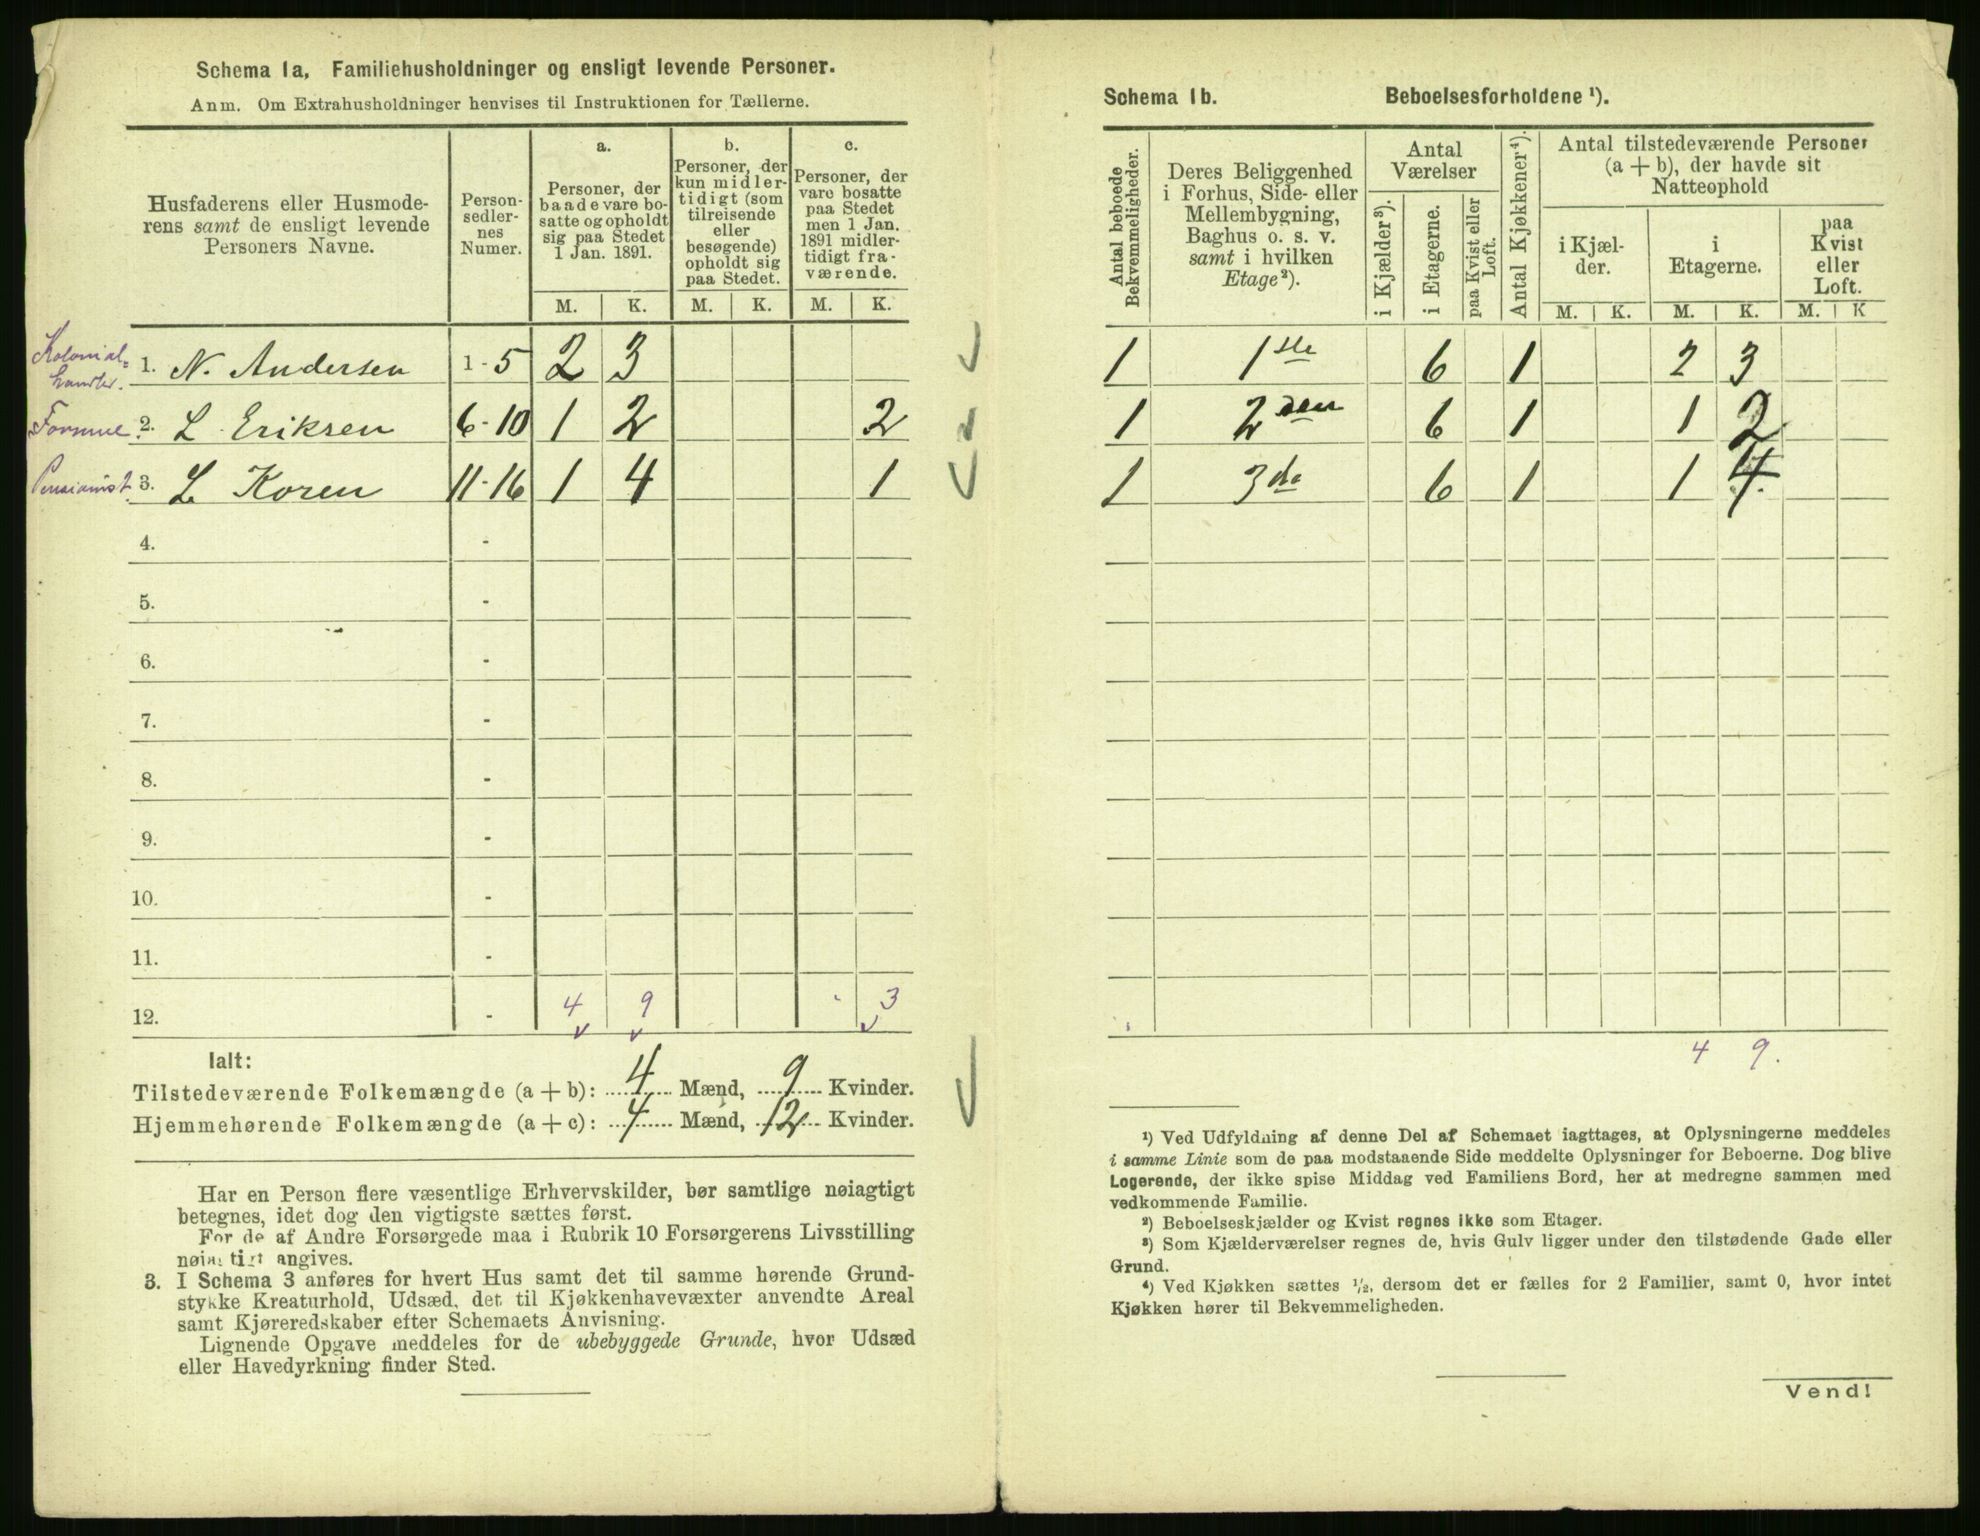 Schema 1a, Familiehusholdninger og ensligt levende Personer.
Anm. Om Extrahusholdninger henvises til Instruktionen for Tællerne.
Husfaderens eller Husmode-
rens samt de ensligt levende
Personers Navne.
Person-
sedler-
nes
Numer.
a.
Personer, der
baade vare bo-
satte og opholdt
sig paa Stedet
1 Jan. 1891.
b.
Personer, der
kun midler-
tidigt (som
tilreisende
eller
besøgende)
opholdt sig
paa Stedet.
c.
Personer, der
vare bosatte
paa Stedet
men 1 Jan.
1891 midler-
tidigt fra-
værende.
M. K. M. K. M. K.
Kolonial-
handler. 1. N. Andersen 1-5 2 3
Formue. 2. L. Eriksen 6-10 1 2 2
Pensionist. 3. L. Koren 11-16 1 4 1
4. -
5. -
6. -
7. -
8. -
9. -
10. -
11. -
12. - 4 9 3
Ialt:
Tilstedeværende Folkemængde (a + b): 4 Mænd, 9 Kvinder.
Hjemmehørende Folkemængde (a + c): 4 Mænd, 12 Kvinder.
Har en Person flere væsentlige Erhvervskilder, bør samtlige nøiagtigt
betegnes, idet dog den vigtigste sættes først.
For de af Andre Forsørgede maa i Rubrik 10 Forsørgerens Livsstilling
nøiagtigt angives.
3. I Schema 3 anføres for hvert Hus samt det til samme hørende Grund-
stykke Kreaturhold, Udsæd, det til Kjøkkenhavevæxter anvendte Areal
samt Kjøreredskaber efter Schemaets Anvisning.
Lignende Opgave meddeles for de ubebyggede Grunde, hvor Udsæd
eller Havedyrkning finder Sted.
Schema 1b. Beboelsesforholdene ¹).
Antal beboede
Bekvemmeligheder.
Deres Beliggenhed
i Forhus, Side- eller
Mellembygning,
Baghus o. s. v.
samt i hvilken
Etage²).
Antal
Værelser
i Kjælder³).
i Etagerne.
paa Kvist eller
Loft.
Antal Kjøkkener⁴).
Antal tilstedeværende Personer
(a + b), der havde sit
Natteophold
i Kjæl-
der.
i
Etagerne.
paa
Kvist
eller
Loft.
M. K. M. K. M. K
1 1ste 6 1 2 3
1 2den 6 1 1 2
1 3die 6 1 1 4
4 9.
¹) Ved Udfyldning af denne Del af Schemaet iagttages, at Oplysningerne meddeles
i samme Linie som de paa modstaaende Side meddelte Oplysninger for Beboerne. Dog blive
Logerende, der ikke spise Middag ved Familiens Bord, her at medregne sammen med
vedkommende Familie.
²) Beboelseskjælder og Kvist regnes ikke som Etager.
³) Som Kjælderværelser regnes de, hvis Gulv ligger under den tilstødende Gade eller
Grund.
⁴) Ved Kjøkken sættes ¹/₂, dersom det er fælles for 2 Familier, samt 0, hvor intet
Kjøkken hører til Bekvemmeligheden.
Vend!